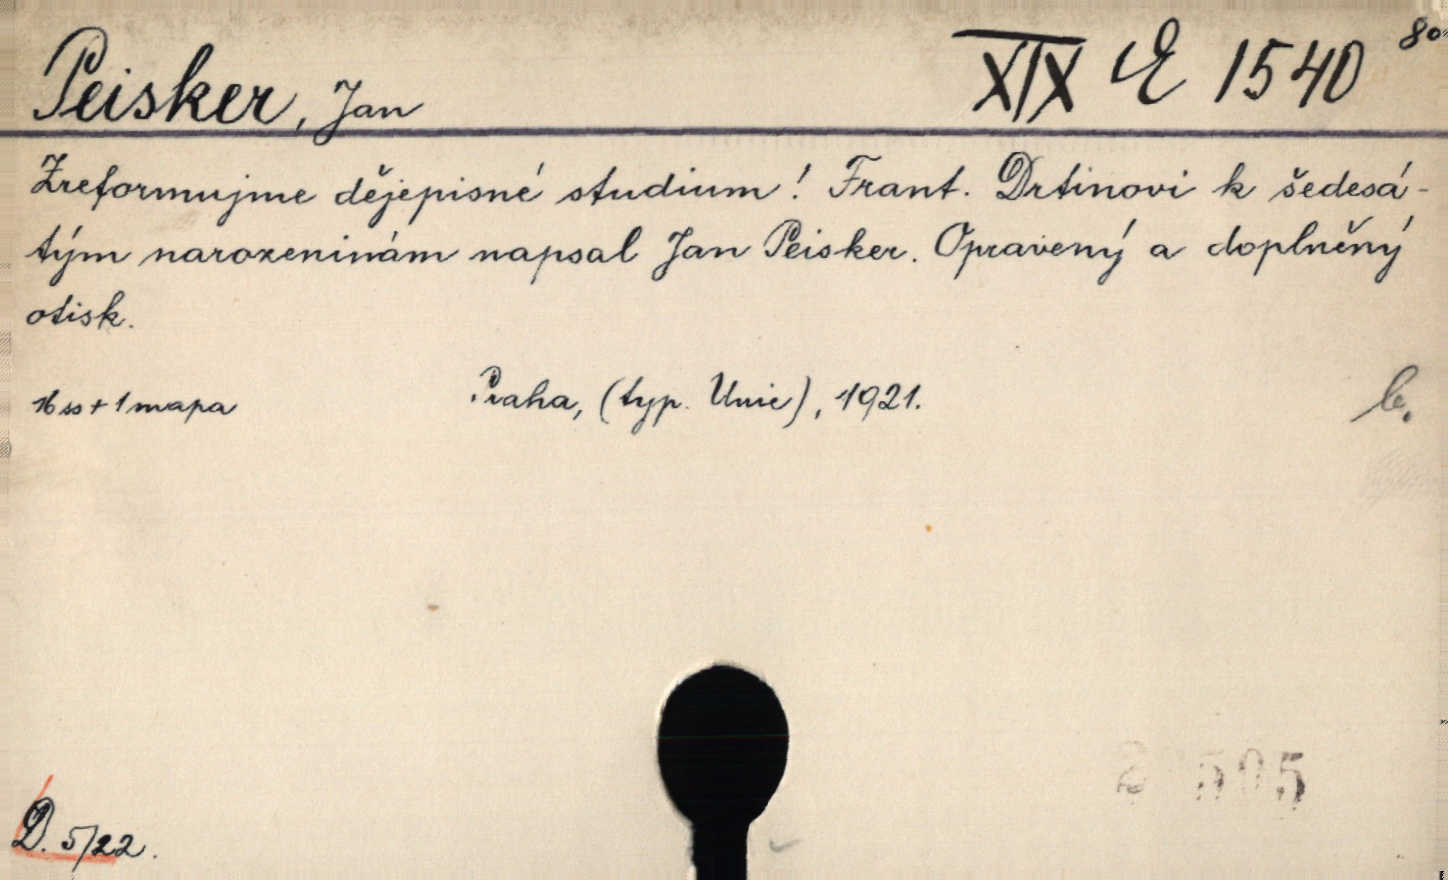 Peisker, Jan
XIX E 1540
8°
Zreformujme dějepisné studium! Frant. Drtinovi k šedesá-
tým narozeninám napsal Jan Peisker. Opravený a doplněný
otisk.
16 ss + 1 mapa
Praha, (typ. Unie), 1921.
D. 5/22.